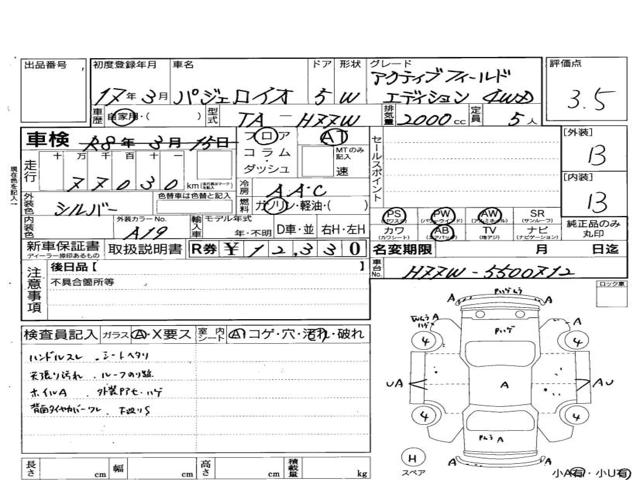 出品番号 初度登録年月 車名 ドア 形状 グレード 評価点
17年3月 パジェロイオ 5 W アクティブフィールド エディション 4WD 3.5
車歴 自家用・( ) 型式 TA-H77W 排気量 2000cc 定員 5人
車検 R8年3月15日 フロア AT
コラム MTのみ記入
ダッシュ 速
セールスポイント
[外装] B
[内装] B
走行 十 万 千 百 十 一
77030 km
冷房 AAC
燃料 ガソリン・軽油・( )
外装色 シルバー 色替車は色替と記入
内装色 外装カラーNo. A19 輸入車 モデル年式 年・不明 D車・並 右H・左H
PS PW AW SR (サンルーフ)
カワ (カワシート) AB TV (地デジ) ナビ (ナビゲーション)
純正品のみ丸印
新車保証書 ディーラー捺印あるもの 取扱説明書 R券 ¥12,330 名変期限 月 日迄
車台No. H77W-5500712
現在色を記入
注意事項 後日品【
不具合箇所等
ロック車
検査員記入 ガラス A・X要ス 室内シート A コゲ・穴・汚れ・破れ
ハンドルスレ・シートヘタリ
天張り汚れ
ホイルA
4 4 4 4
UA A AU
H
スペア
長さ cm 幅 cm 高さ cm 積載量 kg
小A有・小U有